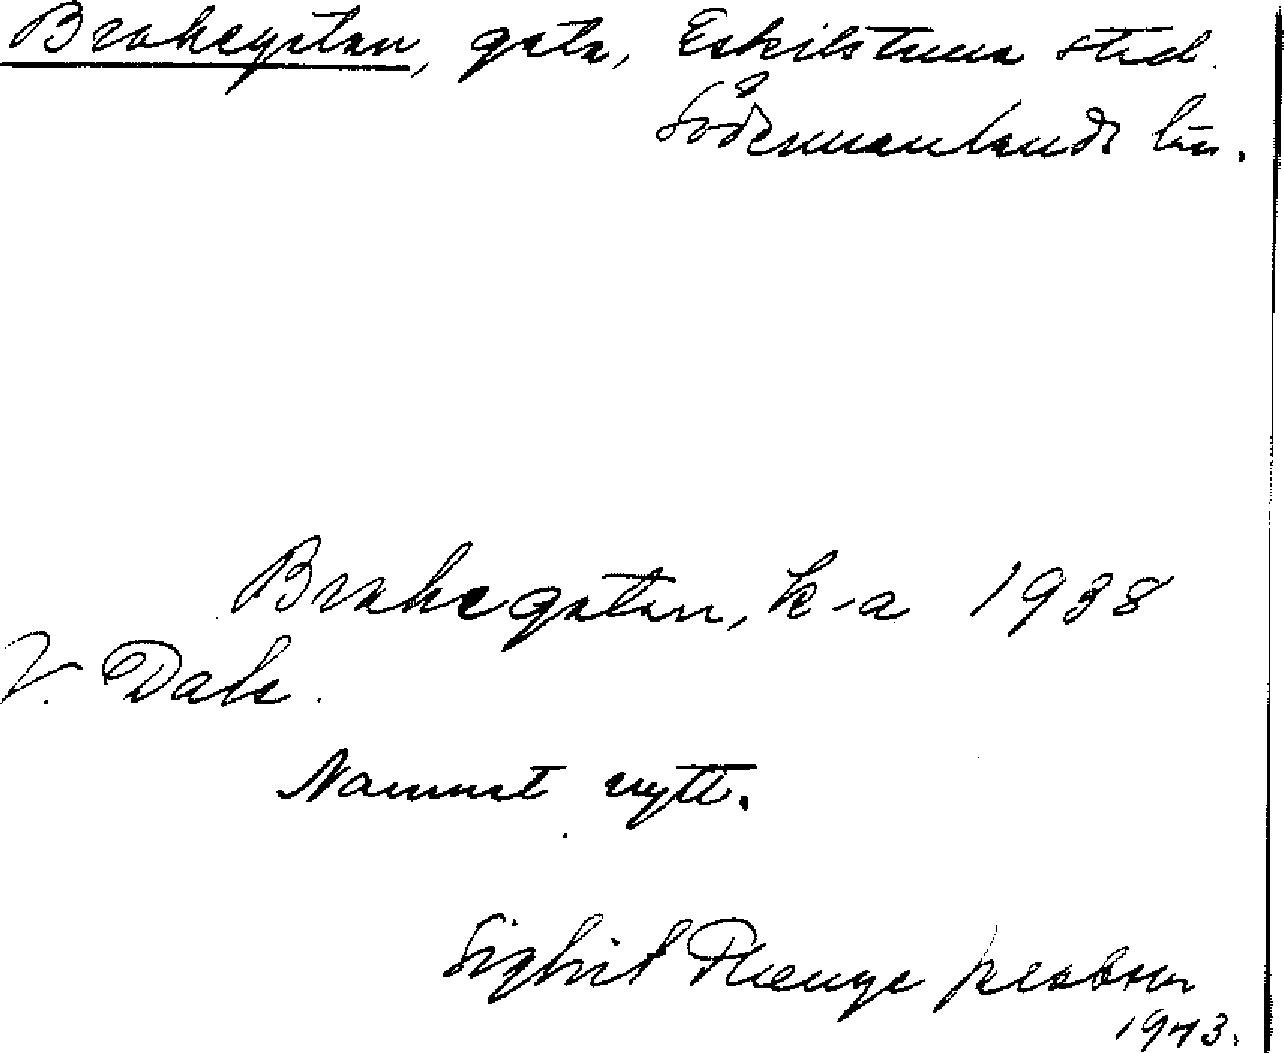 Brahegatan, gata, Eskilstuna stad.
Södermanlands län.
Brahegatan, k-a 1938
V. Dahl.
Namnet nytt.
Sigbrit Plænge Jacobson
1943.